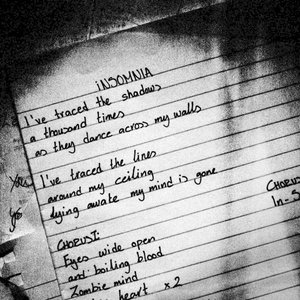 INSOMNIA
I've traced the shadows
a thousand times
as they dance across my walls
I've traced the lines
around my ceiling
lying awake my mind is gone
CHORUS I:
Eyes wide open
and boiling blood
Zombie mind
heart x2
CHORUS
In-S